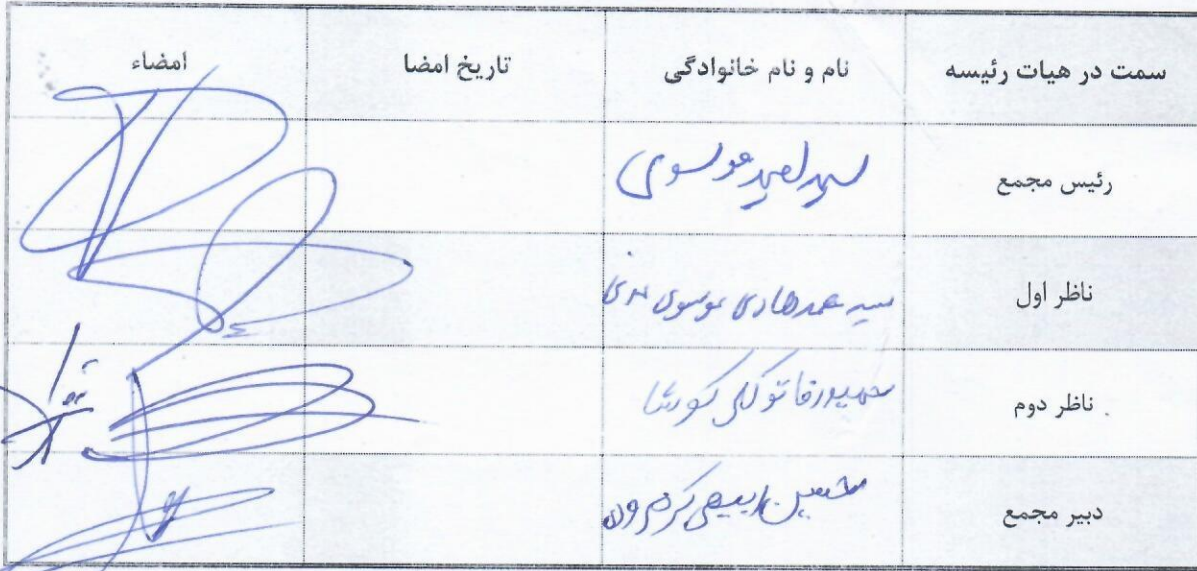 سمت در هیات رئیسه	نام و نام خانوادگی	تاریخ امضا	امضاء
رئیس مجمع	سید موسوی
ناظر اول	سید محمد هادی موسوی
ناظر دوم	حمیدرضا توکلی
دبیر مجمع